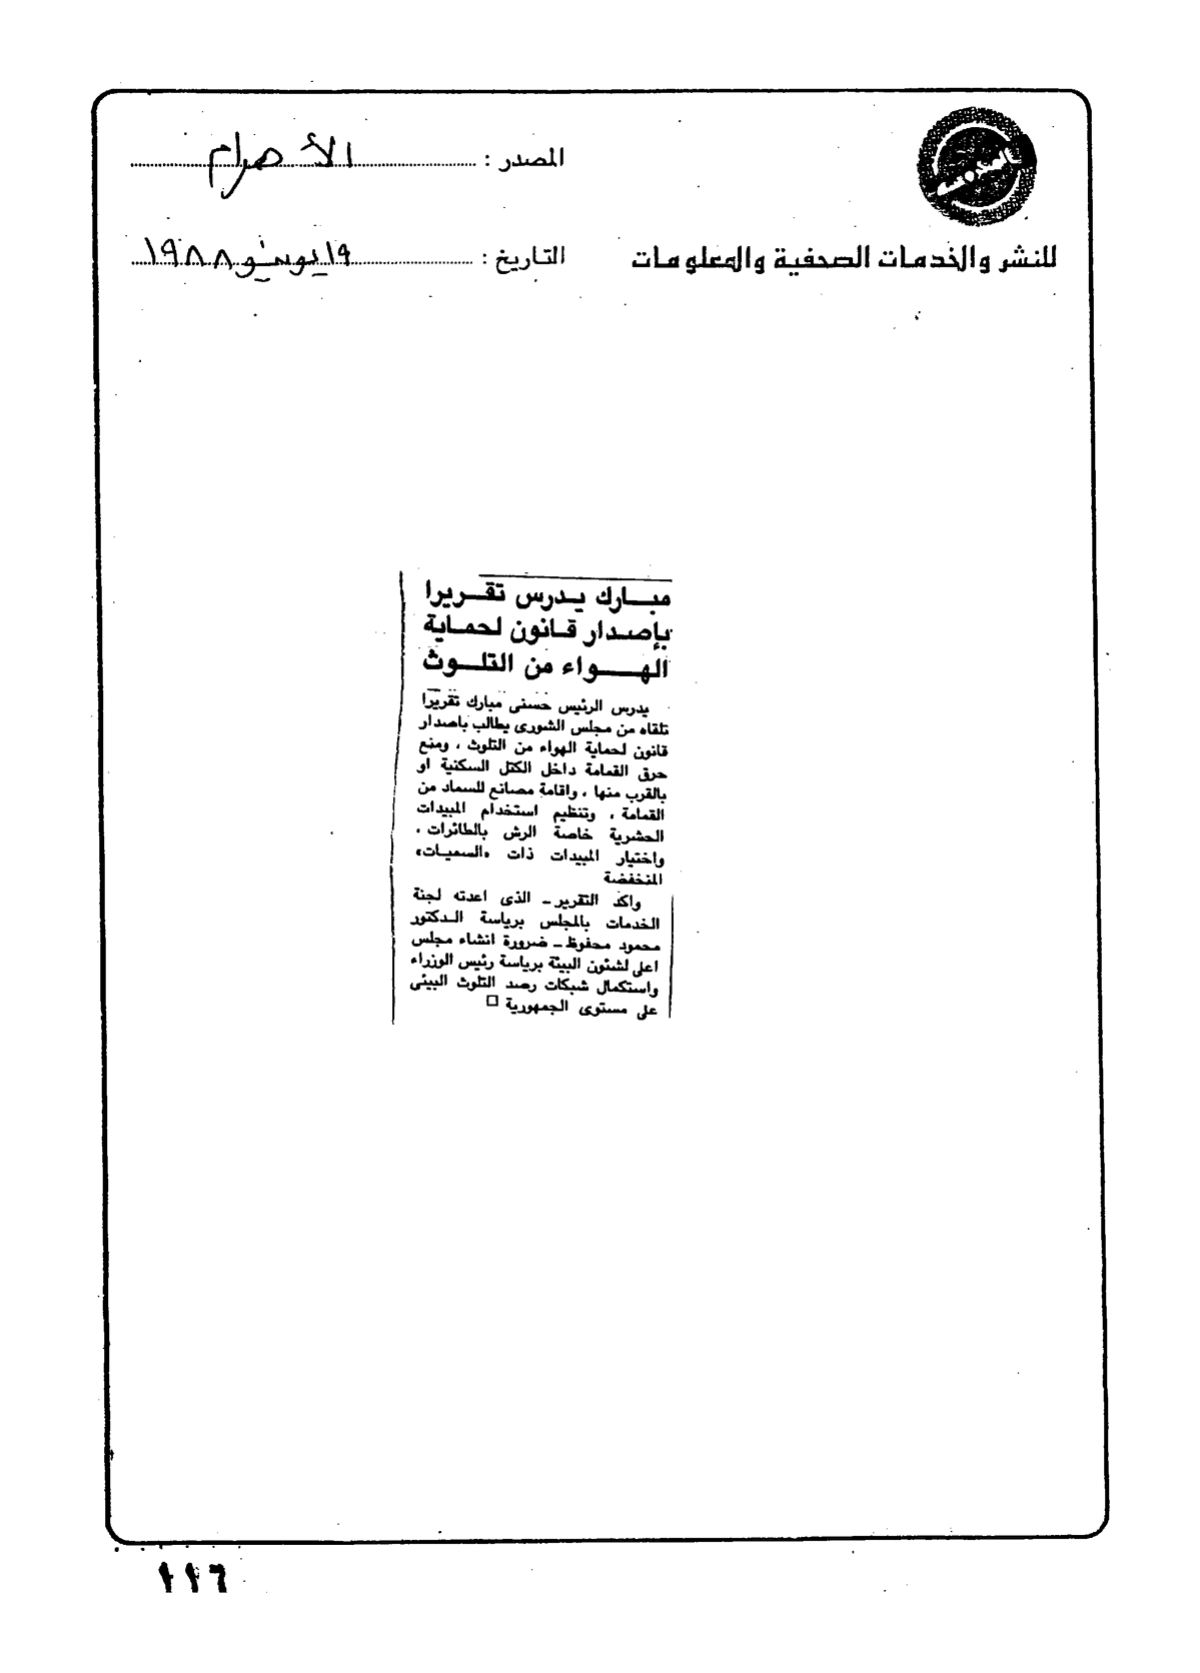 المصدر : الأهرام
للنشر والخدمات الصحفية والمعلومات
التاريخ : ١٩ يونيو ١٩٨٨
مبارك يدرس تقريرا
بإصدار قانون لحماية
الهواء من التلوث
يدرس الرئيس حسنى مبارك تقريرا
تلقاه من مجلس الشورى يطالب باصدار
قانون لحماية الهواء من التلوث ، ومنع
حرق القمامة داخل الكتل السكنية او
بالقرب منها ، واقامة مصانع للسماد من
القمامة ، وتنظيم استخدام المبيدات
الحشرية خاصة الرش بالطائرات ،
واختيار المبيدات ذات «السميات»
المنخفضة
واكد التقرير ـ الذى اعدته لجنة
الخدمات بالمجلس برياسة الدكتور
محمود محفوظ ـ ضرورة انشاء مجلس
اعلى لشئون البيئة برياسة رئيس الوزراء
واستكمال شبكات رصد التلوث البيئى
على مستوى الجمهورية □
١١٦